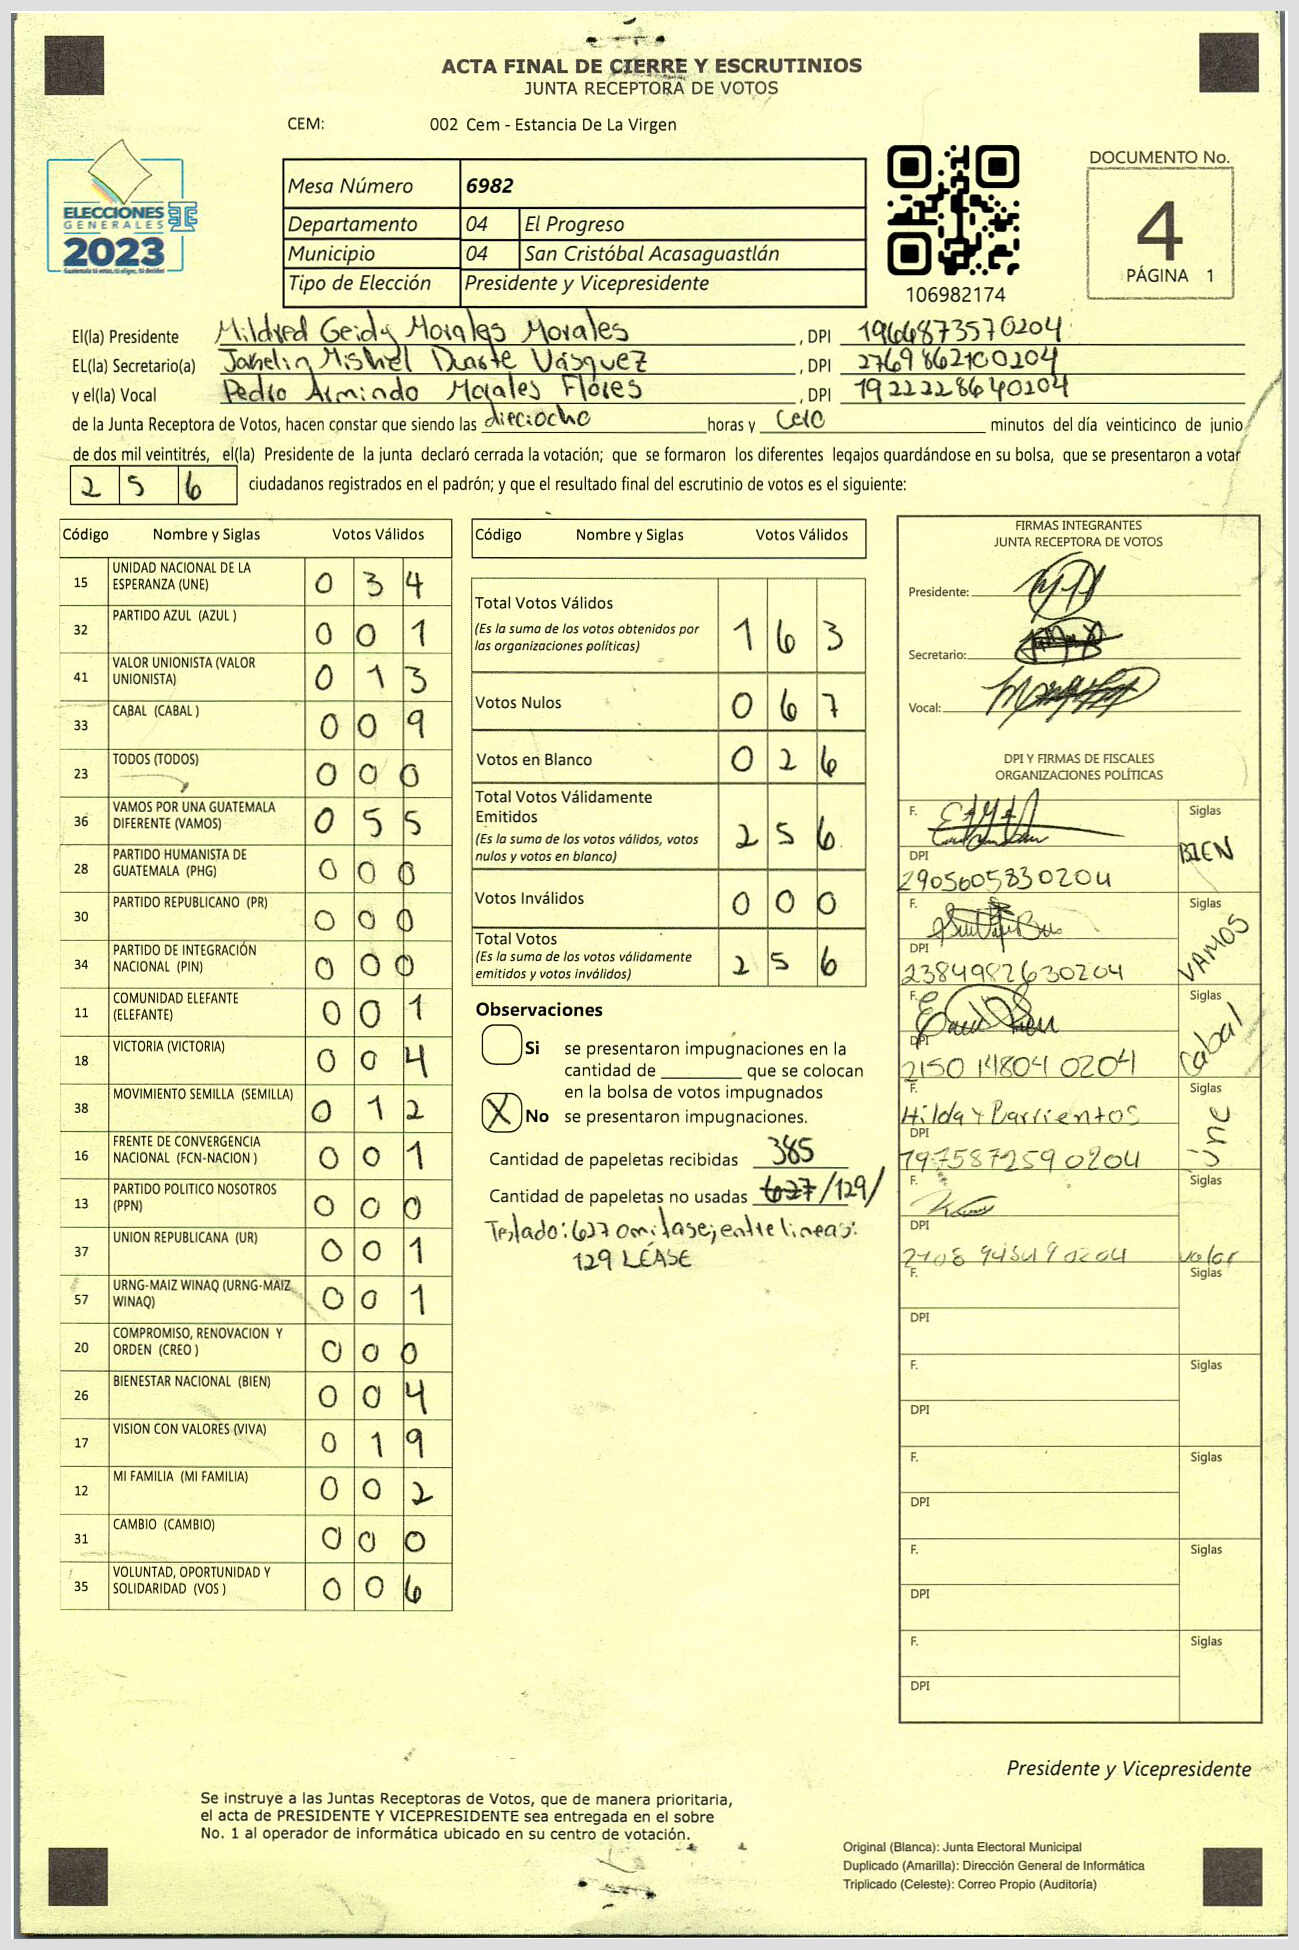 ACTA FINAL DE CIERRE Y ESCRUTINIOS
JUNTA RECEPTORA DE VOTOS
CEM: 002 Cem - Estancia De La Virgen
ELECCIONES
GENERALES
2023
Guatemala tú votas, tú eliges, tú decides
Mesa Número 6982
Departamento 04 El Progreso
Municipio 04 San Cristóbal Acasaguastlán
Tipo de Elección Presidente y Vicepresidente
106982174
DOCUMENTO No.
4
PÁGINA 1
El(la) Presidente Mildred Geidy Morales Morales, DPI 1966873570204
EL(la) Secretario(a) Mishel Duarte Vásquez, DPI 2769862100204
y el(la) Vocal Pedro Armindo Morales Flores, DPI 1922228640204
de la Junta Receptora de Votos, hacen constar que siendo las dieciocho horas y cero minutos del día veinticinco de junio
de dos mil veintitrés, el(la) Presidente de la junta declaró cerrada la votación; que se formaron los diferentes legajos guardándose en su bolsa, que se presentaron a votar
256 ciudadanos registrados en el padrón; y que el resultado final del escrutinio de votos es el siguiente:
Código Nombre y Siglas Votos Válidos
15 UNIDAD NACIONAL DE LA
ESPERANZA (UNE) 0 3 4
32 PARTIDO AZUL (AZUL ) 0 0 1
41 VALOR UNIONISTA (VALOR
UNIONISTA) 0 1 3
33 CABAL (CABAL ) 0 0 9
23 TODOS (TODOS) 0 0 0
36 VAMOS POR UNA GUATEMALA
DIFERENTE (VAMOS) 0 5 5
28 PARTIDO HUMANISTA DE
GUATEMALA (PHG) 0 0 0
30 PARTIDO REPUBLICANO (PR) 0 0 0
34 PARTIDO DE INTEGRACIÓN
NACIONAL (PIN) 0 0 0
11 COMUNIDAD ELEFANTE
(ELEFANTE) 0 0 1
18 VICTORIA (VICTORIA) 0 0 4
38 MOVIMIENTO SEMILLA (SEMILLA) 0 1 2
16 FRENTE DE CONVERGENCIA
NACIONAL (FCN-NACION ) 0 0 1
13 PARTIDO POLITICO NOSOTROS
(PPN) 0 0 0
37 UNION REPUBLICANA (UR) 0 0 1
57 URNG-MAIZ WINAQ (URNG-MAIZ
WINAQ) 0 0 1
20 COMPROMISO, RENOVACION Y
ORDEN (CREO ) 0 0 0
26 BIENESTAR NACIONAL (BIEN) 0 0 4
17 VISION CON VALORES (VIVA) 0 1 9
12 MI FAMILIA (MI FAMILIA) 0 0 2
31 CAMBIO (CAMBIO) 0 0 0
35 VOLUNTAD, OPORTUNIDAD Y
SOLIDARIDAD (VOS ) 0 0 6
Código Nombre y Siglas Votos Válidos
Total Votos Válidos
(Es la suma de los votos obtenidos por
las organizaciones políticas) 1 6 3
Votos Nulos 0 6 7
Votos en Blanco 0 2 6
Total Votos Válidamente
Emitidos
(Es la suma de los votos válidos, votos
nulos y votos en blanco) 2 5 6
Votos Inválidos 0 0 0
Total Votos
(Es la suma de los votos válidamente
emitidos y votos inválidos) 2 5 6
Observaciones
Si se presentaron impugnaciones en la
cantidad de ________ que se colocan
en la bolsa de votos impugnados
X No se presentaron impugnaciones.
Cantidad de papeletas recibidas 385
Cantidad de papeletas no usadas 627 /129/
Testado: 627 omitase; entre lineas:
129 LÉASE
FIRMAS INTEGRANTES
JUNTA RECEPTORA DE VOTOS
Presidente:
Secretario:
Vocal:
DPI Y FIRMAS DE FISCALES
ORGANIZACIONES POLÍTICAS
F. Siglas
BIEN
DPI
2905605830204
F. Siglas
VAMOS
DPI
2384982630204
F. Siglas
Cabal
DPI
2150 14804 0204
F. Siglas
Hilda Y Barrientos
une
DPI
1975872590204
F. Siglas
DPI
valor
F. Siglas
DPI
F. Siglas
DPI
F. Siglas
DPI
F. Siglas
DPI
F. Siglas
DPI
Presidente y Vicepresidente
Se instruye a las Juntas Receptoras de Votos, que de manera prioritaria,
el acta de PRESIDENTE Y VICEPRESIDENTE sea entregada en el sobre
No. 1 al operador de informática ubicado en su centro de votación.
Original (Blanca): Junta Electoral Municipal
Duplicado (Amarilla): Dirección General de Informática
Triplicado (Celeste): Correo Propio (Auditoría)